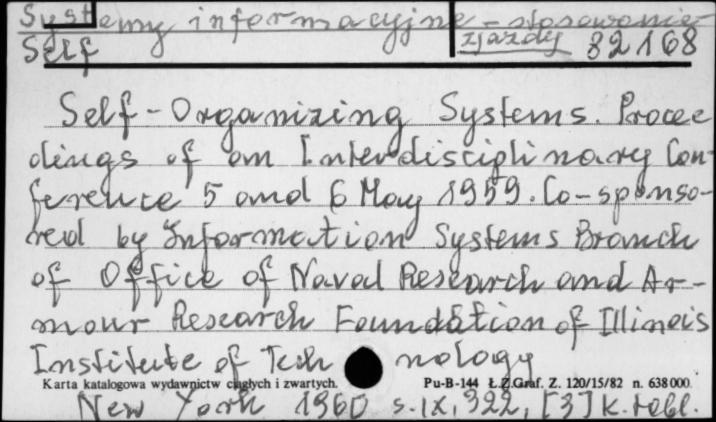 Systemy informacyjne - stosowanie
Self
zjazdy 82168
Self-Organizing Systems. Procee
dings of an Interdisciplinary Con-
ference 5 and 6 May 1959. Co-sponso-
red by Information Systems Branch
of Office of Naval Research and Ar-
mour Research Foundation of Illinois
Institute of Tech nology
Karta katalogowa wydawnictw ciągłych i zwartych. Pu-B-144 Ł.Z.Graf. Z. 120/15/82 n. 638000.
New York 1960 s. IX, 322, [3] k. tabl.